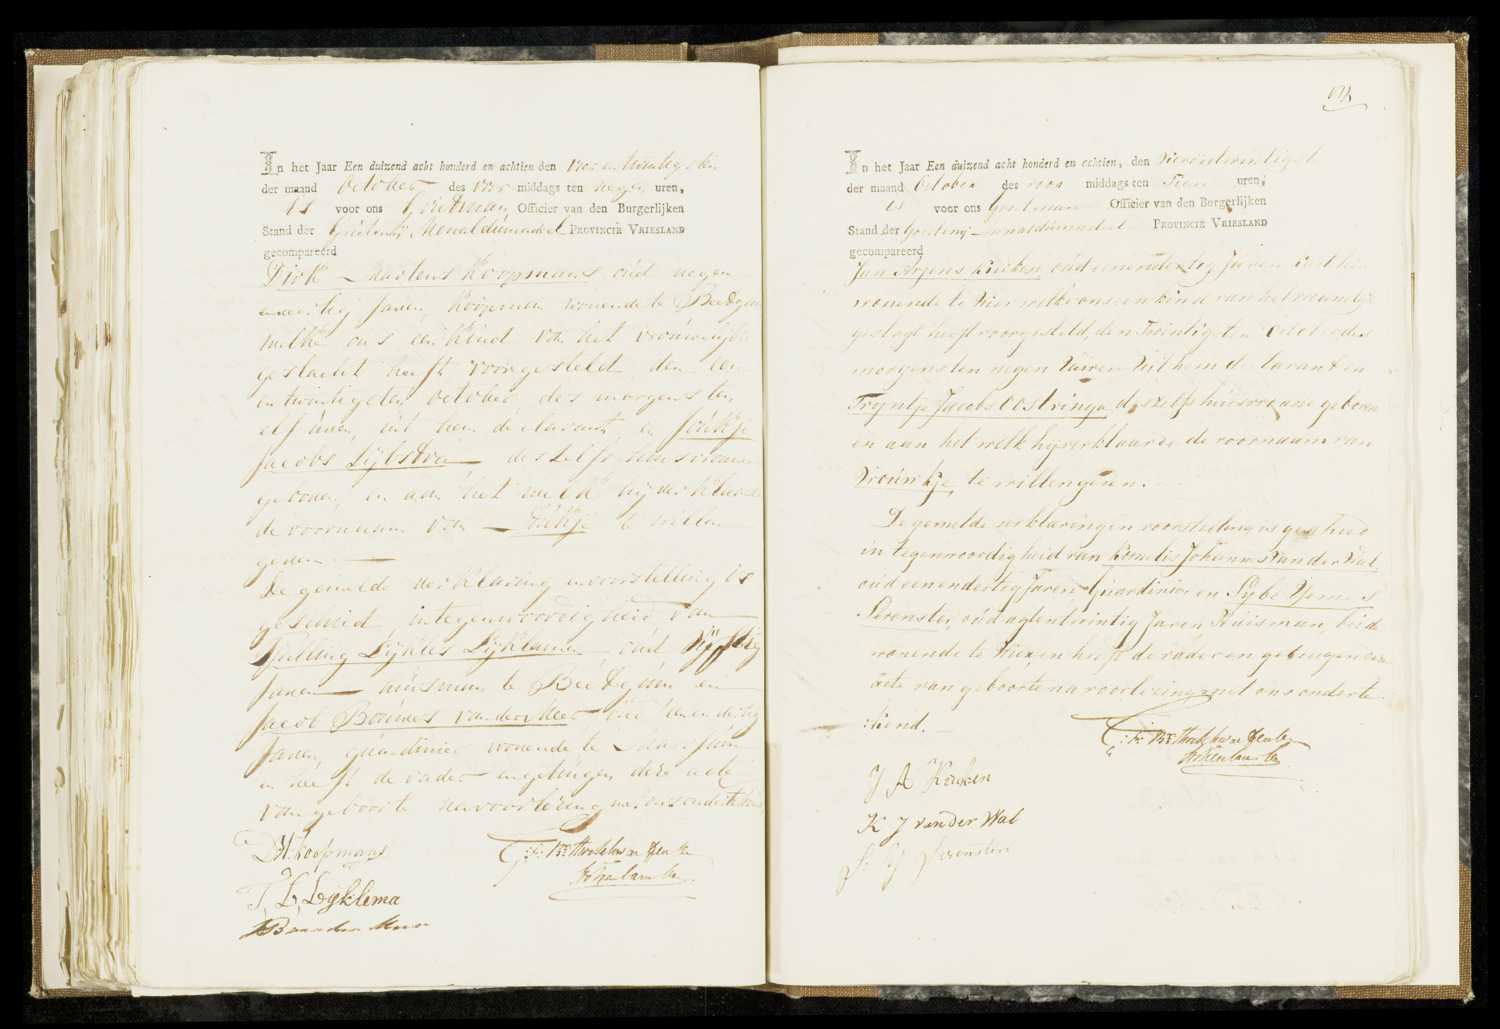 In het Jaar Een duizend acht honderd en achtien den vier en twintigsten
der maand October des voor middags ten negen uren,
is voor ons Grietman, Officier van den Burgerlijken
Stand der Grietenij Menaldumadeel PROVINCIE VRIESLAND
gecompareerd
Dirk Martens Koopmans oud negen
en veertig Jaren, Koopman wonende te Beetgum
welke ons een kind van het vrouwelijke
geslacht heeft voorgesteld den een
en twintigsten october des morgens ten
elf uren, uit hem declarant en
Jacobs Dijkstra deszelfs huisvrouw
geboren, en aan het welk hij verklaarde
de voornaam van te willen
geven
De gemelde verklaring en voorstelling is
geschied in tegenwoordigheid van
Tjalling Dijkles Dijklama oud vijftig
Jaren huisman te Beetgum en
Jacob Bouwes van der Meer oud een en dertig
Jaren, guardinier wonende te
en heeft de vader en getuigen deze acte
van geboorte na voorlezing met ons ondertekend
D M Koopmans
T, L, Dijklema
J B van der Meer
In het Jaar Een duizend acht honderd en achtien, den vierentwintigste
der maand October des voor middags ten Tien uren,
is voor ons Grietman Officier van den Burgerlijken
Stand der Grietenij Menaldumadeel PROVINCIE VRIESLAND
gecompareerd
Jan Arjens Kuiken oud eenendertig Jaren
wonende te Wier welke ons een kind van het vrouwelijk
geslagt heeft voorgesteld, den Twintigsten October des
morgens ten negen Uuren Uit hem declarant en
Tryntje Jacobs Oostringa deszelfs huisvrouw geboren
en aan het welk hij verklaarde de voornaam van
Vrouwkje, te willen geven.
De gemelde verklaring en voorstelling is geschied
in tegenwoordigheid van Kornelis Johannes van der Wal
oud eenendertig Jaren Guardinier en Sijbe
Serenster, oud agtentwintig Jaren Huisman, beide
wonende te Wier, en heeft de vader en getuigen deze
acte van geboorte na voorlezinge met ons onderte-
:kend.
J A Kuiken
K J van der Wal
S: Y Serenster